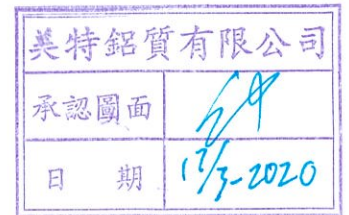 美特鋁質有限公司
承認圖面
日 期 17/3-2020